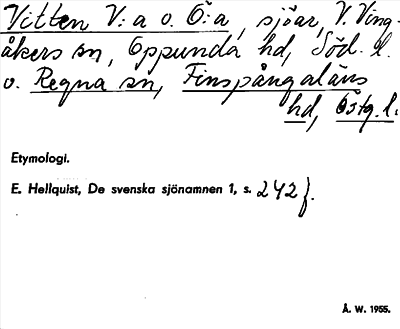 Vitten V:a o. Ö:a, sjöar, V. Ving-
åkers sn, Oppunda hd, Söd. l.
o. Regna sn, Finspångaläns
hd, Östg. l.
Etymologi.
E. Hellquist, De svenska sjönamnen 1, s. 242 f.
Å. W. 1955.